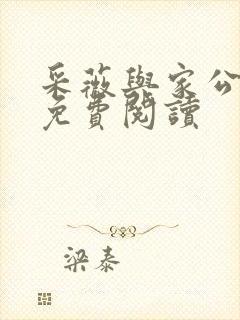 采薇與家公
免費閱讀
梁泰